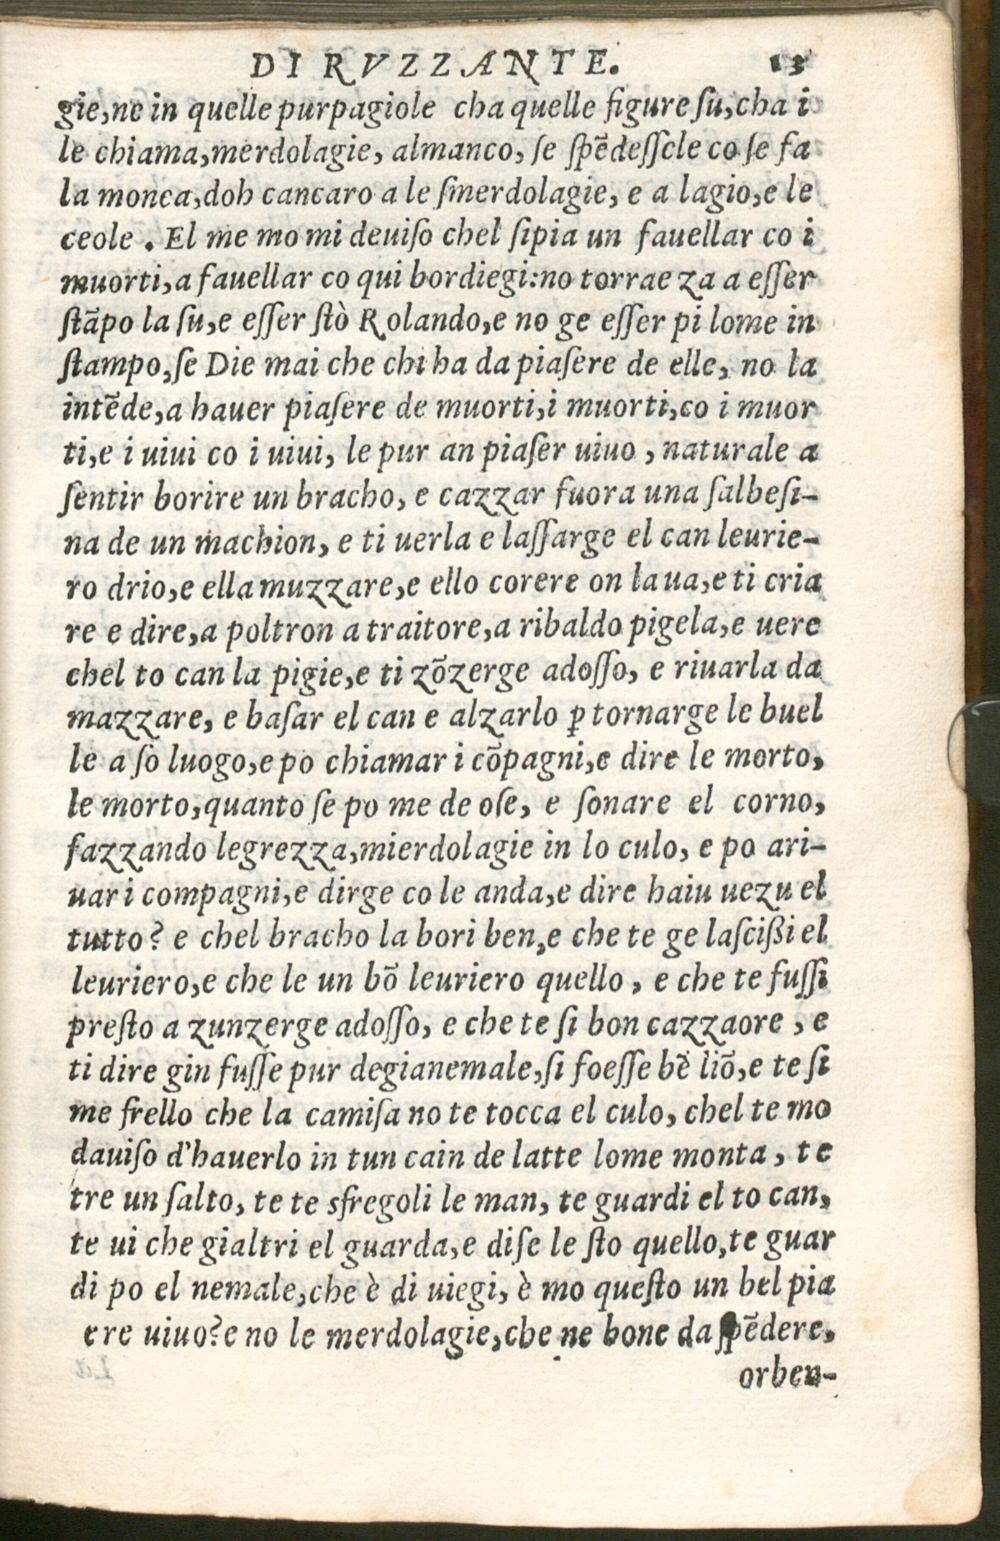 DI RVZZANTE. 13
gie,ne in quelle purpagiole cha quelle figure ſu,cha i
le chiama,merdolagie, almanco, ſe ſpẽdeſſele co ſe fa
la monea,doh cancaro a le ſmerdolagie, e a lagio,e le
ceole . El me mo mi deuiſo chel ſipia un fauellar co i
muorti,a fauellar co qui bordiegi:no torrae za a eſſer
ſtãpo la ſu,e eſſer ſtò Rolando,e no ge eſſer pi lome in
ſtampo,ſe Die mai che chi ha da piaſere de elle, no la
intẽde,a hauer piaſere de muorti,i muorti,co i muor
ti,e i uiui co i uiui, le pur an piaſer uiuo , naturale a
ſentir borire un bracho, e cazzar fuora una ſalbeſi-
na de un machion, e ti uerla e laſſarge el can leurie-
ro drio,e ella muzzare,e ello corere on la ua,e ti cria
re e dire,a poltron a traitore,a ribaldo pigela,e uere
chel to can la pigie,e ti zõzerge adoſſo, e riuarla da
mazzare, e baſar el can e alzarlo ꝑ tornarge le buel
le a ſò luogo,e po chiamar i cõpagni,e dire le morto,
le morto,quanto ſe po me de oſe, e ſonare el corno,
fazzando legrezza,mierdolagie in lo culo, e po ari-
uar i compagni,e dirge co le anda,e dire haiu uezu el
tutto? e chel bracho la bori ben,e che te ge laſcißi el
leuriero,e che le un bõ leuriero quello , e che te fuſſi
preſto a zunzerge adoſſo, e che te ſi bon cazzaore , e
ti dire gin fuſſe pur degianemale,ſi foeſſe bẽ liõ,e te ſi
me frello che la camiſa no te tocca el culo, chel te mo
dauiſo d'hauerlo in tun cain de latte lome monta , te
tre un ſalto, te te sfregoli le man, te guardi el to can,
te ui che gialtri el guarda,e diſe le ſto quello,te guar
di po el nemale,che è di uiegi, è mo queſto un bel pia
ere uiuo?e no le merdolagie,che ne bone da ſpẽdere,
orben-